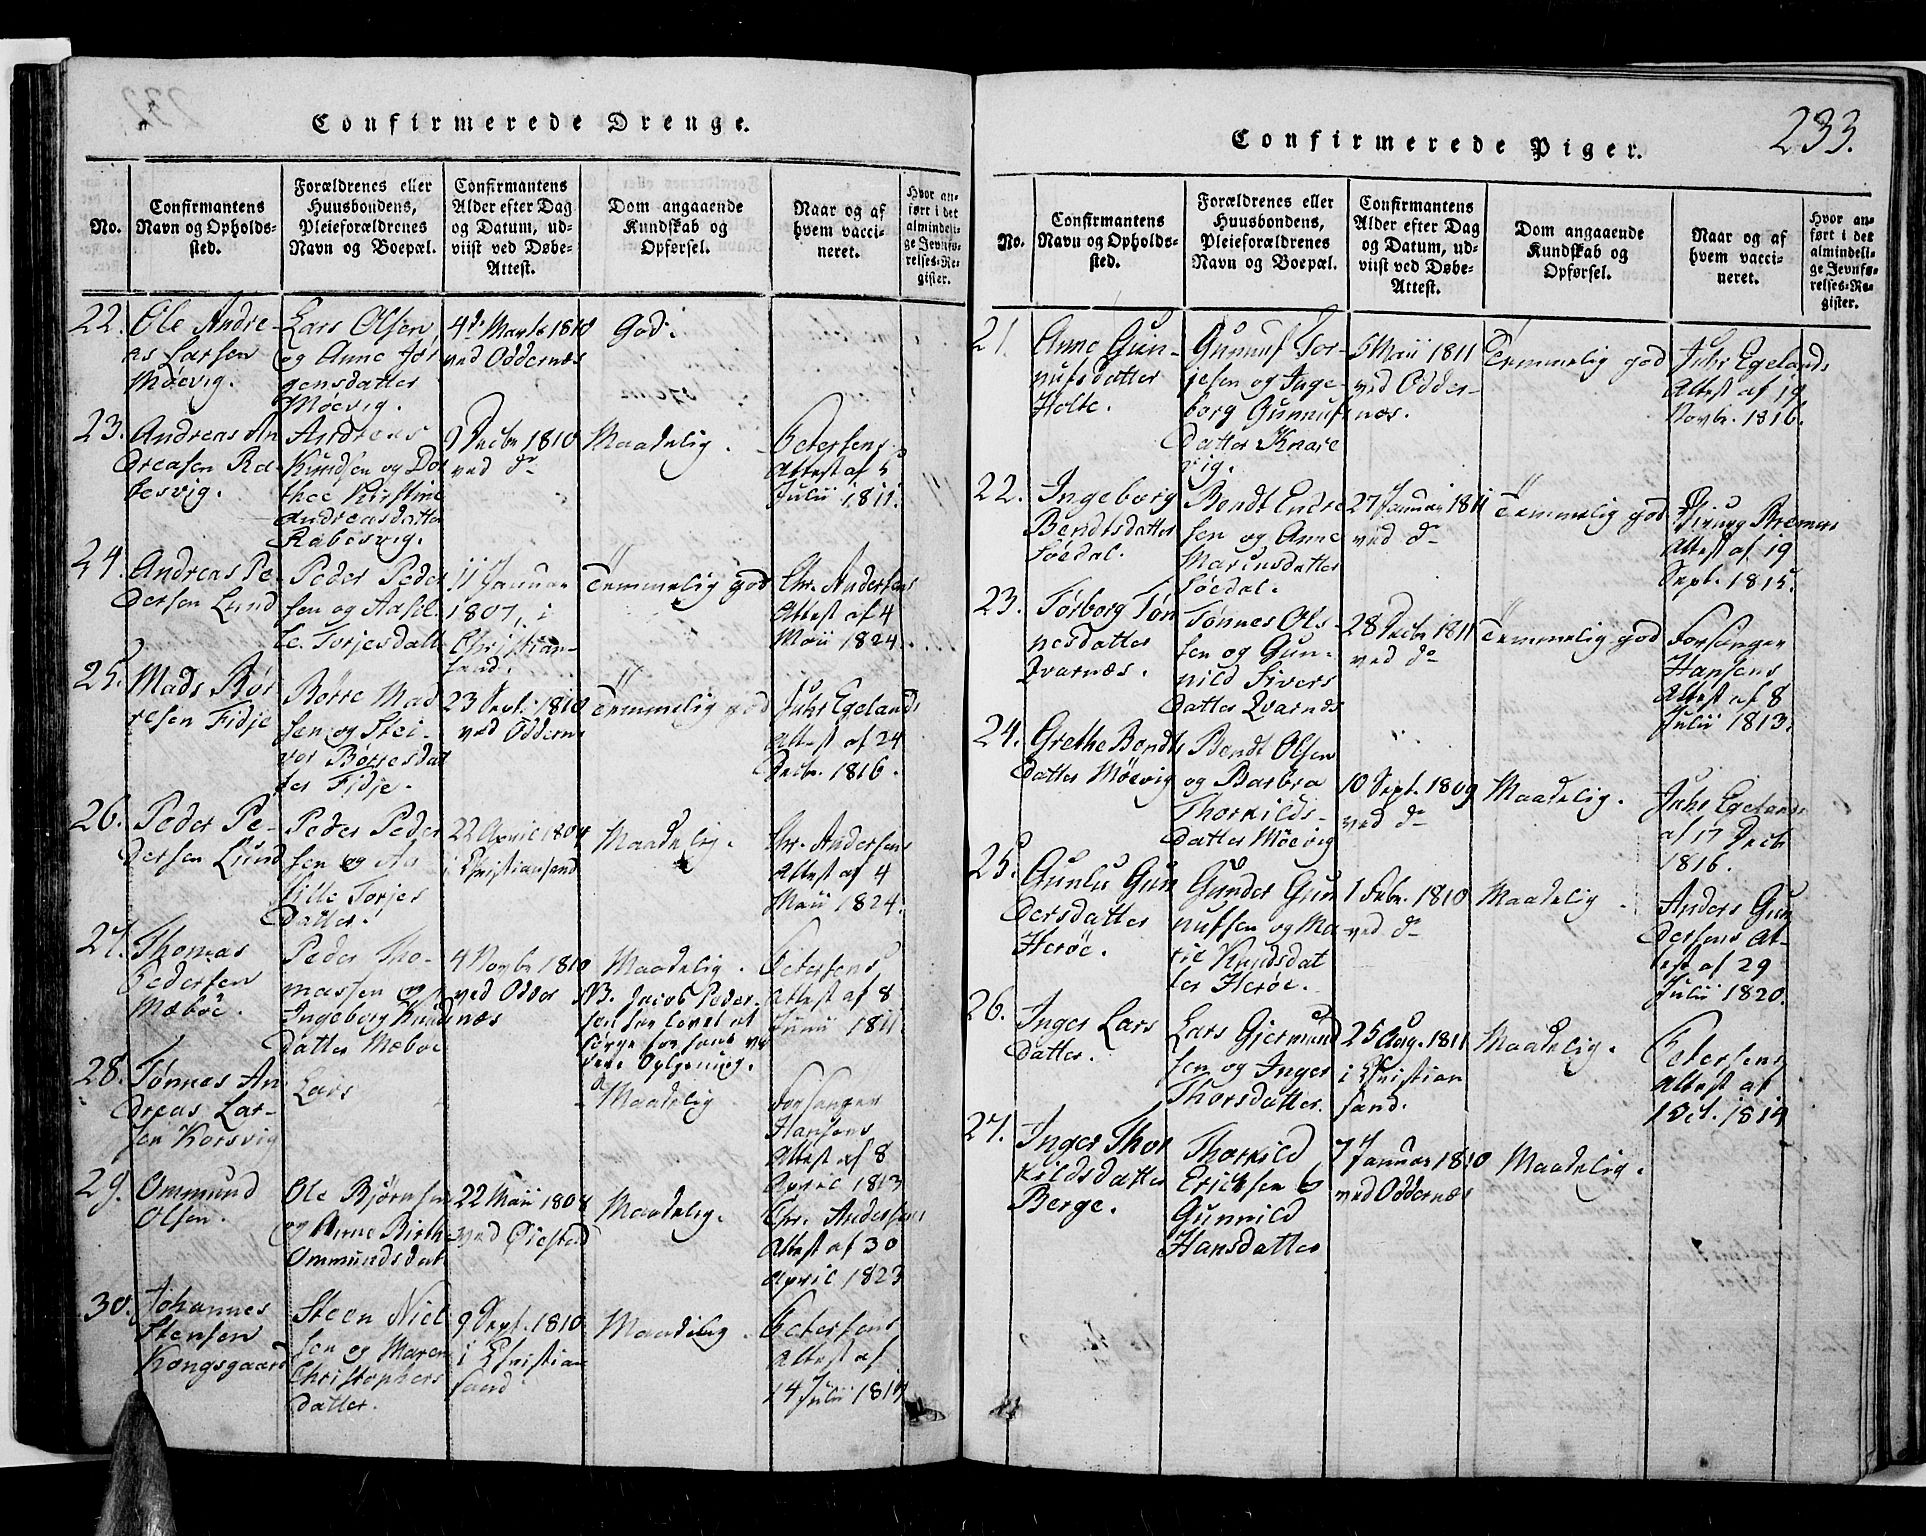 Confirmerede Drenge.
No.
Confirmantens
Navn og Opholds-
sted.
Forældrenes eller
Huusbondens,
Pleieforældrenes
Navn og Boepæl.
Confirmantens
Alder efter Dag
og Datum, ud-
viist ved Døbe-
Attest.
Dom angaaende
Kundskab og
Opførsel.
Naar og af
hvem vacci-
neret.
Hvor an-
ført i det
almindeli-
ge Jevnfø-
relses-Re-
gister.
22.
Ole Andre-
as Larsen
Møevig.
Lars Olsen
og Anne Jør
gensdatter
Møevig.
4de Marts 1810
ved Oddernæs
God.
23.
Andreas An
dreasen Ra-
besvig.
Andreas
Knudsen og Dor
thee Kirstine
Andreasdatter
Rabesvig.
9 Decbr 1810
ved do
Maadelig.
Petersens
Attest af 5
Julii 1811.
24.
Andreas Pe-
dersen Lund
Peder Peder
sen og Aasil-
le Torjesdatt
11 Januar
1807, i
Christian-
sand.
Temmelig god
Chr. Andersens
Attest af 4
Maii 1824.
25.
Mads Bør
resen Fidje
Børre Mad
sen og Stei-
vor Børresdat
ter Fidje.
23 Sept. 1810
ved Oddernæs
Temmelig god
Juhr Egelands
Attest af 24
Decbr. 1816.
26.
Peder Pe-
dersen Lund
Peder Peder
sen og Aa-
sille Torjes
Datter.
22 April 1804
i Christiansand
Maadelig.
Chr. Andersens
Attest af 4
Maii 1824.
27.
Thomas
Pedersen
Mæbøe.
Peder Tho-
massen og
Ingeborg Knuds
datter Mæbøe
4 Novbr 1810
ved Odder
næs
Maadelig.
NB. Jacob Peder-
sen har lovet at
sørge for hans vi
dere Oplysning.
Petersens
Attest af 8
Junii 1811.
28.
Tønnes An
dreas Lar-
sen Korsvig
Lars
Maadelig
Forsanger
Hansens
Attest af 8
April 1813
29.
Ommund
Olsen.
Ole Bjørnsen
og Anne Birth
Ommundsdat
22 Maii 1808
ved Øiestad
Maadelig.
Chr. Andersens
Attest af 30
April 1823
30.
Johannes
Stensen
Kongsgaard
Steen Niel
sen og Maren
Christophers
datter.
9 Sept. 1810
i Christian
sand
Maadelig.
Petersens
Attest af
14 Julii 1814
233.
Confirmerede Piger.
No.
Confirmantens
Navn og Opholds-
sted.
Forældrenes eller
Huusbondens,
Pleieforældrenes
Navn og Boepæl.
Confirmantens
Alder efter Dag
og Datum, ud-
viist ved Døbe-
Attest.
Dom angaaende
Kundskab og
Opførsel.
Naar og af
hvem vacci-
neret.
Hvor an-
ført i det
almindeli-
ge Jevnfø-
relses-Re-
gister.
21.
Anne Gun-
nufsdatter
Holte.
Gunnuf Tor-
jesen og Inge-
borg Gunnufs
datter Knare
vig.
5 Maii 1811
ved Odder-
næs.
Temmelig god
Juhr Egelands
Attest af 19
Novbr. 1816.
22.
Ingeborg
Bendtsdatter
Søedal.
Bendt Endre
sen og Anne
Mariusdatter
Søedal.
27 Januar 1811
ved do
Temmelig god
Chirurg Bremers
Attest af 19
Sept. 1815.
23.
Tørborg Tøn
nesdatter
Qvarnæs.
Tønnes Ols-
sen og Gun-
nild Sivers
datter Qvarnæs
28 Decbr 1811
ved do
Temmelig god
Forsanger
Hansens
Attest af 8
Julii 1813.
24.
Grethe Bendts
datter Møevig
Bendt Olsen
og Barbra
Thorkilds-
datter Møevig
10 Sept. 1809
ved do
Maadelig.
Juhr Egelands
af 17 Decbr
1816.
25.
Gunlu Gun
dersdatter
Herøe.
Gunder Gun
nufsen og Ma-
rie Knudsdat
ter Herøe.
1 Febr. 1810
ved do
Maadelig.
Anders Gun
dersens At-
test af 29
Julii 1820.
26.
Inger Lars
datter.
Lars Gjermund
sen og Inger
Thorsdatter.
25 Aug. 1811
i Christian
sand.
Maadelig.
Petersens
Attest af
1 Oct. 1814
27.
Inger Thor
kildsdatter
Berge.
Thorkild
Ericksen &
Gunnild
Hansdatter
7 Januar 1810
ved Oddernæs
Maadelig.